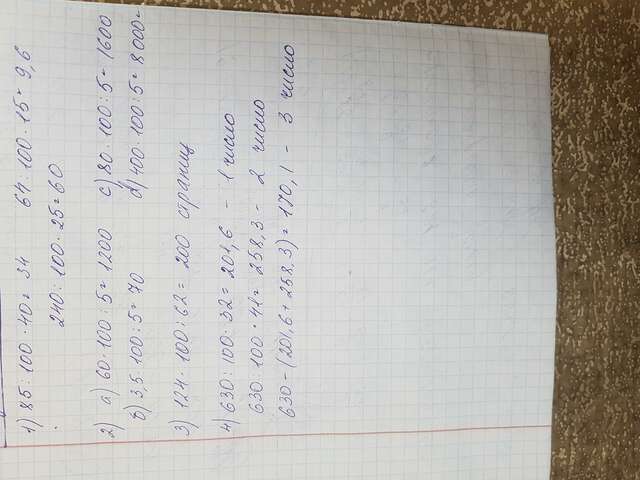 1) 85 : 100 · 40 = 34 64 : 100 · 15 = 9,6
240 : 100 · 25 = 60
2) а) 60 · 100 : 5 = 1200 с) 80 · 100 : 5 = 1600
б) 3,5 · 100 : 5 = 70 d) 400 · 100 : 5 = 8000
3) 124 · 100 : 62 = 200 страниц
4) 630 : 100 : 32 = 201,6 - 1 число
630 : 100 · 41 = 258,3 - 2 число
630 - (201,6 + 258,3) = 170,1 - 3 число